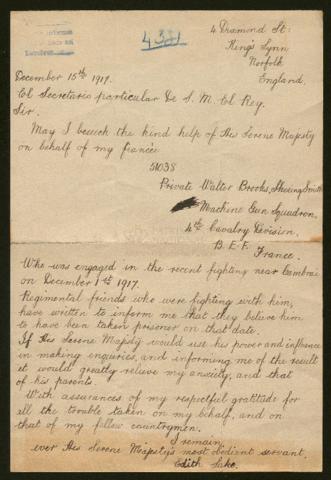 4381
4 Diamond St:
Kings Lynn
Norfolk
England.
December 15th 1917.
El Secretario particular De S. M. El Rey.
Sir.
May I beseech the kind help of His Serene Majesty
on behalf of my fiancée
51038
Private Walter Brooks, Shoeing Smith
Machine Gun Squadron.
4th Cavalry Division.
B. E. F.
France.
Who was engaged in the recent fighting near Cambrai
on December 1st 1917.
Regimental friends who were fighting with him,
have written to inform me that they believe him
to have been taken prisoner on that date.
If His Serene Majesty would use his power and influence
in making enquiries, and informing me of the result
it would greatly relieve my anxiety, and that
of his parents.
With assurances of my respectful gratitude for
all the trouble taken on my behalf, and on
that of my fellow countrymen.
I remain,
ever His Serene Majesty's most obedient servant,
Edith Lake.